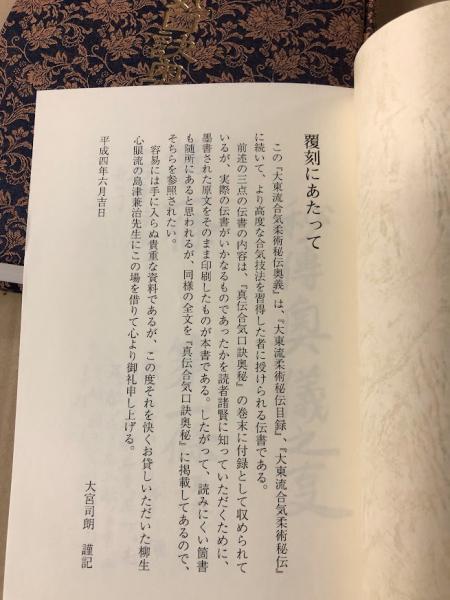 覆刻にあたって
この『大東流合気柔術秘伝奥義』は、『大東流柔術秘伝目録』、『大東流合気柔術秘伝』
に続いて、より高度な合気技法を習得した者に授けられる伝書である。
前述の三点の伝書の内容は、『真伝合気口訣奥秘』の巻末に付録として収められて
いるが、実際の伝書がいかなるものであったかを読者諸賢に知っていただくために、
墨書された原文をそのまま印刷したものが本書である。したがって、読みにくい箇書
も随所にあると思われるが、同様の全文を『真伝合気口訣奥秘』に掲載してあるので、
そちらを参照されたい。
容易には手に入らぬ貴重な資料であるが、この度それを快くお貸しいただいた柳生
心眼流の島津兼治先生にこの場を借りて心より御礼申し上げる。
平成四年六月吉日
大宮司朗 謹記